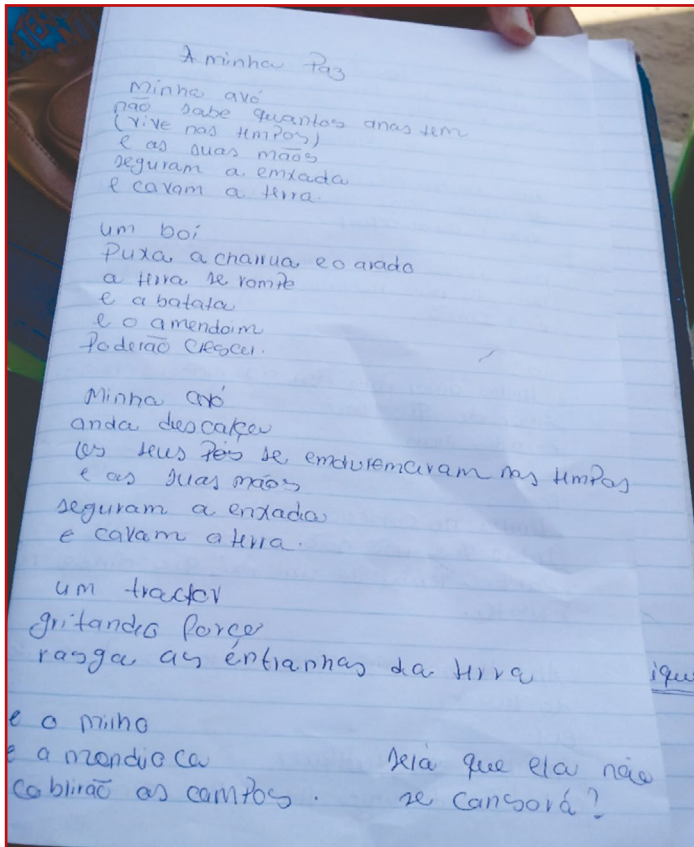 A minha Paz
Minha avó
não sabe quantos anas tem
(vive nas tempos)
e as suas mãos
seguram a emxada
e cavam a terra.
um boi
Puxa a charrua e o arado
a terra se rompe
e a batata
e o amendoim
Poderão crescer.
Minha avó
anda descalça
os seus Pés se nos tempos
e as suas mãos
seguram a enxada
e cavam a terra.
um tractor
gritando Force
rasga as éntranhas da terra
e o milho
e a mandioca
cobrirão os campos.
será que ela não
se cansará?